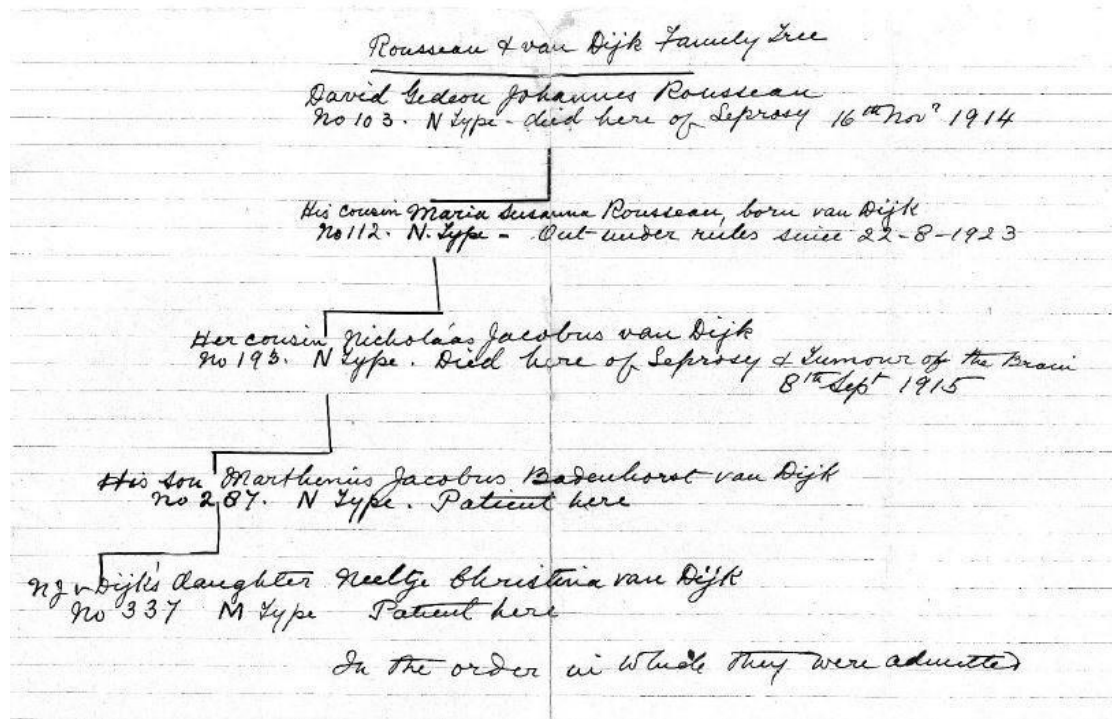 Rousseau & van Dijk Family Tree
David Gedeon Johannes Rousseau
No 103. N Type - died here of Leprosy 16th Novr 1914
His cousin Maria Susanna Rousseau, born van Dijk
No 112. N. Type - Out under rules since 22-8-1923
Her cousin Nicholáas Jacobus van Dijk
No 193. N Type. Died here of Leprosy & Tumour of the Brain
8th Sept 1915
His son Marthinius Jacobus Badenhorst van Dijk
No 287. N Type. Patient here
NJ v Dijk's daughter Neeltje Christina van Dijk
No 337 M Type Patient here
In the order in which they were admitted